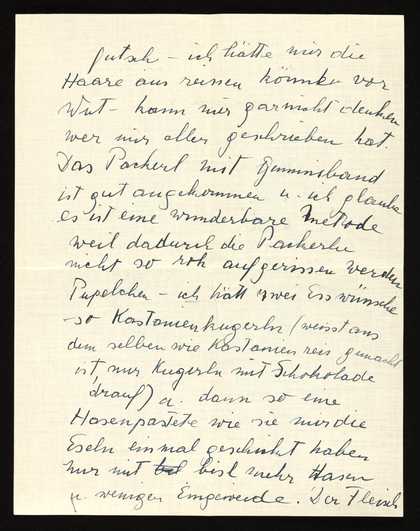 futsch - ich hätte mir die
Haare aus reissen können vor
Wut - kann mir gar nicht denken
wer mir alles geschrieben hat.
Das Packerl mit Gummiband
ist gut angekommen u. ich glaube
es ist eine wunderbare Metode
weil dadurch die Packerln
nicht so roh aufgerissen werden
Pupelchen - ich hätt zwei Esswünsche
- so Kastanienkugerln (weisst aus
dem selben wie Kastanien reis gemacht
ist, nur Kugerln mit Schokolade
drauf) u. dann so eine
Hasenpastete wie sie mir die
Eseln einmal geschickt haben
nur mit bisl mehr Hasen
u. weniger Eingeweide. Der Fleisch